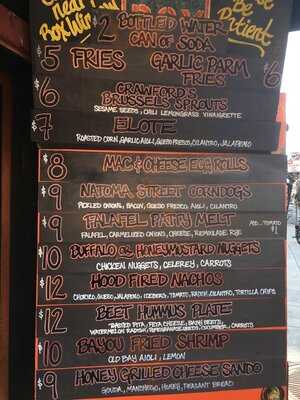 near
Box Wi
Be
Patient
2 BOTTLED WATER
CAN OF SODA
5 FRIES GARLIC PARM
FRIES 6
6 CRAWFORD'S
BRUSSELS SPROUTS
SESAME SEEDS, CHILI LEMONGRASS VINAIGRETTE
7 ELOTE
ROASTED CORN, GARLIC AIOLI, QUESO FRESCO, CILANTRO, JALAPEÑO
8 MAC & CHEESE EGG ROLLS
9 NATOMA STREET CORNDOGS
PICKLED ONIONS, BACON, QUESO FRESCO, AIOLI, CILANTRO
9 FALAFEL PATTY MELT ADD TOMATO
FALAFEL, CARAMELIZED ONIONS, CHEESE, REMOULADE RYE $1
10 BUFFALO OR HONEYMUSTARD NUGGETS
CHICKEN NUGGETS, CELEREY, CARROTS
12 HOOD FIRED NACHOS
CHORIZO, QUESO, JALAPENO, ICEBERG, TOMATO, RANCH, CILANTRO, TORTILLA CHIPS
12 BEET HUMMUS PLATE
TOASTED PITA, FETA CHEESE, BABY BEETS,
WATERMELON RADISH, POMEGRANATE SEEDS, CUCUMBER, CARROTS
10 BAYOU FRIED SHRIMP
OLD BAY AIOLI, LEMON
9 HONEY GRILLED CHEESE SANDO
GOUDA, MANCHEGO, HONEY, PEASANT BREAD